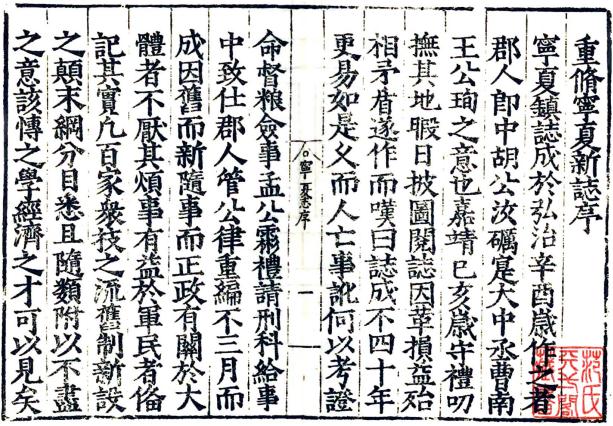 重脩寧夏新誌序
寧夏鎮誌成於弘治辛酉歲作之者
郡人郎中胡公汝礪寔大中丞曹南
王公珣之意也嘉靖己亥歲守禮叨
撫其地暇日披圖閱誌因革損益殆
相矛盾遂作而嘆曰誌成不四十年
更易如是乆而人亡事訛何以考證
寧夏志序
一
命督粮僉事孟公霦禮請刑科給事
中致仕郡人管公律重編不三月而
成因舊而新隨事而正政有關於大
體者不厭其煩事有益於軍民者俻
記其實凢百家衆技之流舊制新設
之顛末綱分目悉且隨類附以不盡
之意該愽之學經濟之才可以見矣
范氏
天一閣